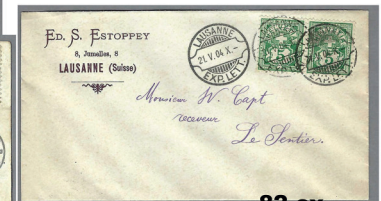 ED. S. ESTOPPEY
8, Jumelles, 8
LAUSANNE (Suisse)
LAUSANNE
21.V.04 X.-
EXP.LETT.
Monsieur W. Capt
receveur
Le Sentier.